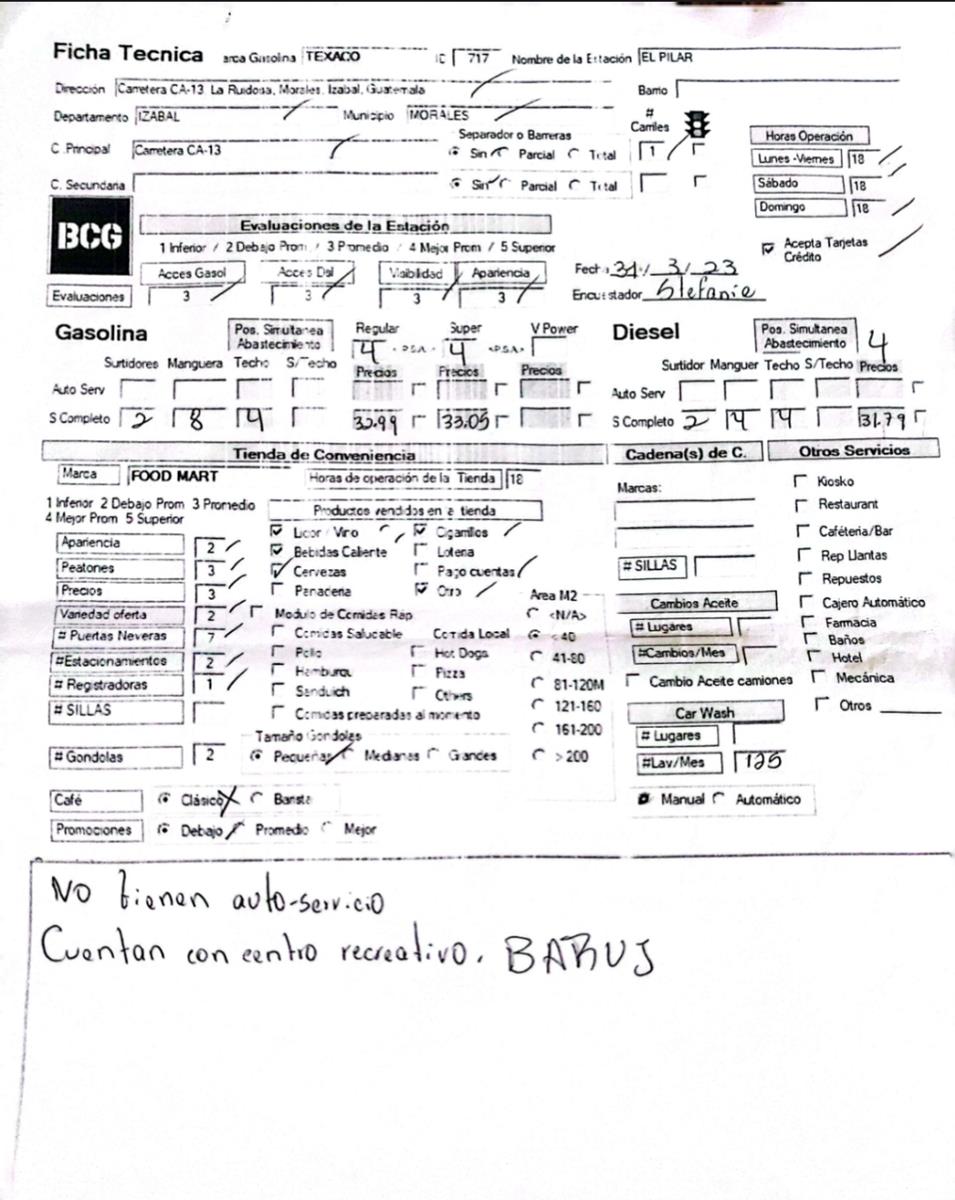 Ficha Tecnica arca Gasolina TEXACO IC 717 Nombre de la Estación EL PILAR
Dirección Carretera CA-13 La Ruidosa, Morales, Izabal, Guatemala Barrio
Departamento IZABAL Municipio MORALES # Carriles
Separador o Barreras Horas Operación
C. Principal Carretera CA-13 Sin Parcial Total 1 Lunes -Viernes 18
C. Secundaria Sin Parcial Total Sábado 18
Domingo 18
BCG Evaluaciones de la Estación
1 Inferior / 2 Debajo Prom / 3 Promedio / 4 Mejor Prom / 5 Superior Acepta Tarjetas Crédito
Acces Gasol Acces Dsl Visibilidad Apariencia
Evaluaciones 3 3 3 3
Fecha 31/3/23
Encuestador Stefanie
Gasolina Pos. Simultanea Abastecimiento Regular 4 Super 4 V Power Diesel Pos. Simultanea Abastecimiento 4
Surtidores Manguera Techo S/Techo Precios Precios Precios Surtidor Manguer Techo S/Techo Precios
Auto Serv Auto Serv
S Completo 2 8 4 33.05 S Completo 2 4 4 31.79
Tienda de Conveniencia Cadena(s) de C. Otros Servicios
Marca FOOD MART Horas de operación de la Tienda 18 Marcas: Kiosko
1 Inferior 2 Debajo Prom 3 Promedio
4 Mejor Prom 5 Superior
Productos vendidos en la tienda Restaurant
Apariencia 2 Licor / Vino Cigarrillos Caféteria/Bar
Bebidas Caliente Loteria Rep Llantas
Peatones 3 Cervezas Pago cuentas # SILLAS Repuestos
Precios 3 Panaderia Otro Area M2 Cambios Aceite Cajero Automático
Variedad oferta 2 Modulo de Comidas Rap <N/A> # Lugares Farmacia
# Puertas Neveras 7 Comidas Salucable Comida Local <40 Baños
#Estacionamientos 2 Pollo Hot Dogs 41-80 #Cambios/Mes Hotel
# Registradoras 1 Hamburgu Pizza 81-120M Cambio Aceite camiones Mecánica
# SILLAS Sandwich Others 121-160 Otros
Comidas preparadas al momento 161-200 Car Wash
Tamaño Gondolas # Lugares
# Gondolas 2 Pequeñas Medianas Grandes > 200 #Lav/Mes 125
Café Clásico Barista Manual Automático
Promociones Debajo Promedio Mejor
No tienen auto-servicio
Cuentan con centro recreativo.